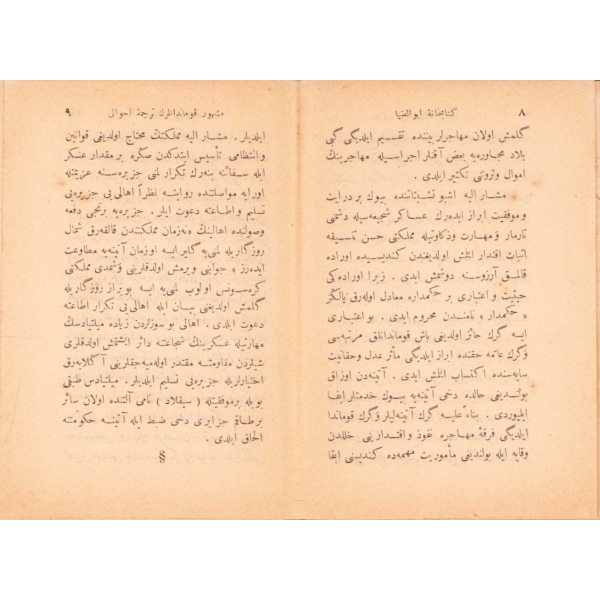 ٨ كتابخانهٔ ابوالضيا
گلمش اولان مهاجرلر بيننده تقسيم ايلديگى گبى
بلاد مجاوره‌يه بعض آقنلر اجراسيله مهاجرينك
اموال وثروتنى تكثير ايلدى .
مشار اليه اشبو تشبثاتنده بيوك بر درايت
وموفقيت ابراز ايده‌رك عساكر شجيعه‌سيله دشمنى
تارمار ومهارت وذكاوتيله مملكتى حسن تنسيقه
اثبات اقتدار ائلش اولديغندن كنديسيده اوراده
قالمق آرزوسنه دوشمش ايدى . زيرا اوراده‌كى
حيثيت و اعتبارى بر حكمداره معادل اوله‌رق يالكز
« حكمدار » نامندن محروم ايدى . بو اعتبارى
ايسه گرك حائز اولديغى باش قوماندانلق مرتبه‌سى
وگرك عامه حقنده ابراز ايلديگى مآثر عدل و حقانيت
سايه‌سنده اكتساب ائلش ايدى . آتينه‌دن اوزاق
بولنديغى حالده دخى آتينه‌يه بيوك خدمتلر ايفا
ايليوردى . بناءً عليه گرك آتينه‌ليلر وگرك قوماندا
ايلديگى فرقهٔ مهاجره نفوذ و اقتدارينى خللدن
وقايه ايله بولنديغى مأموريت مهمه‌ده كنديسنى ابقا
مشهور قوماندانلرك ترجمهٔ احوالى ٩
ايلديلر . مشار اليه مملكتك محتاج اولديغى قوانين
و انتظامى تأسيس ايتدكدن صكره بر مقدار عسكر
ايله سفائنه بنه‌رك تكرار لمنى جزيره‌سنه عزيمتله
اورايه مواصلتنده روايتنه نظراً اهالى‌يى جزيره‌يى
تسليم و اطاعته دعوت ايلر . جزيره‌يه برنجى دفعه
وصولنده اهالينك « نه‌زمان مملكتندن قالقه‌رق شمال
روزگاريله لمنى‌يه گلير ايسه اوزمان آتينه‌يه مطاوعت
ايده‌رز » جوابنى ويرمش اولدقلرينى وشمدى مملكتى
كرسونس اولوب لمنى‌يه ايسه بويراز روزگاريله
گلمش اولديغنى بيان ايله اهالى‌يى تكرار اطاعته
دعوت ايلدى . اهالى بو سوزلردن زياده ميلتيادسك
مهارتيله عسكرينك شجاعتنه دائر ايشتمش اولدقلرى
شيلردن مقاومته مقتدر اوله‌ميه‌جقلرينى آكلايه‌رق
اختيارلريله جزيره‌يى تسليم ايلديلر . ميلتيادس طبقى
بويله بر موفقيتله ( سيقلاد ) نامى آلتنده اولان سائر
بر طاقم جزايرى دخى ضبط ايله آتينه حكومتنه
الحاق ايلدى .
§